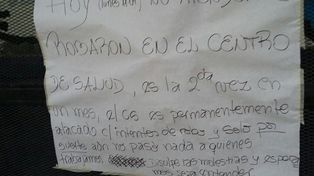 HOY (lunes
ROBARON EN EL CENTRO
DE SALUD, es la 2da vez en
un mes, el cs es permanentemente
atacado c/intentos de robos y solo por
suerte aún no pasó nada a quienes
trabajamos, disculpe las molestias y espera
mos sepa entender